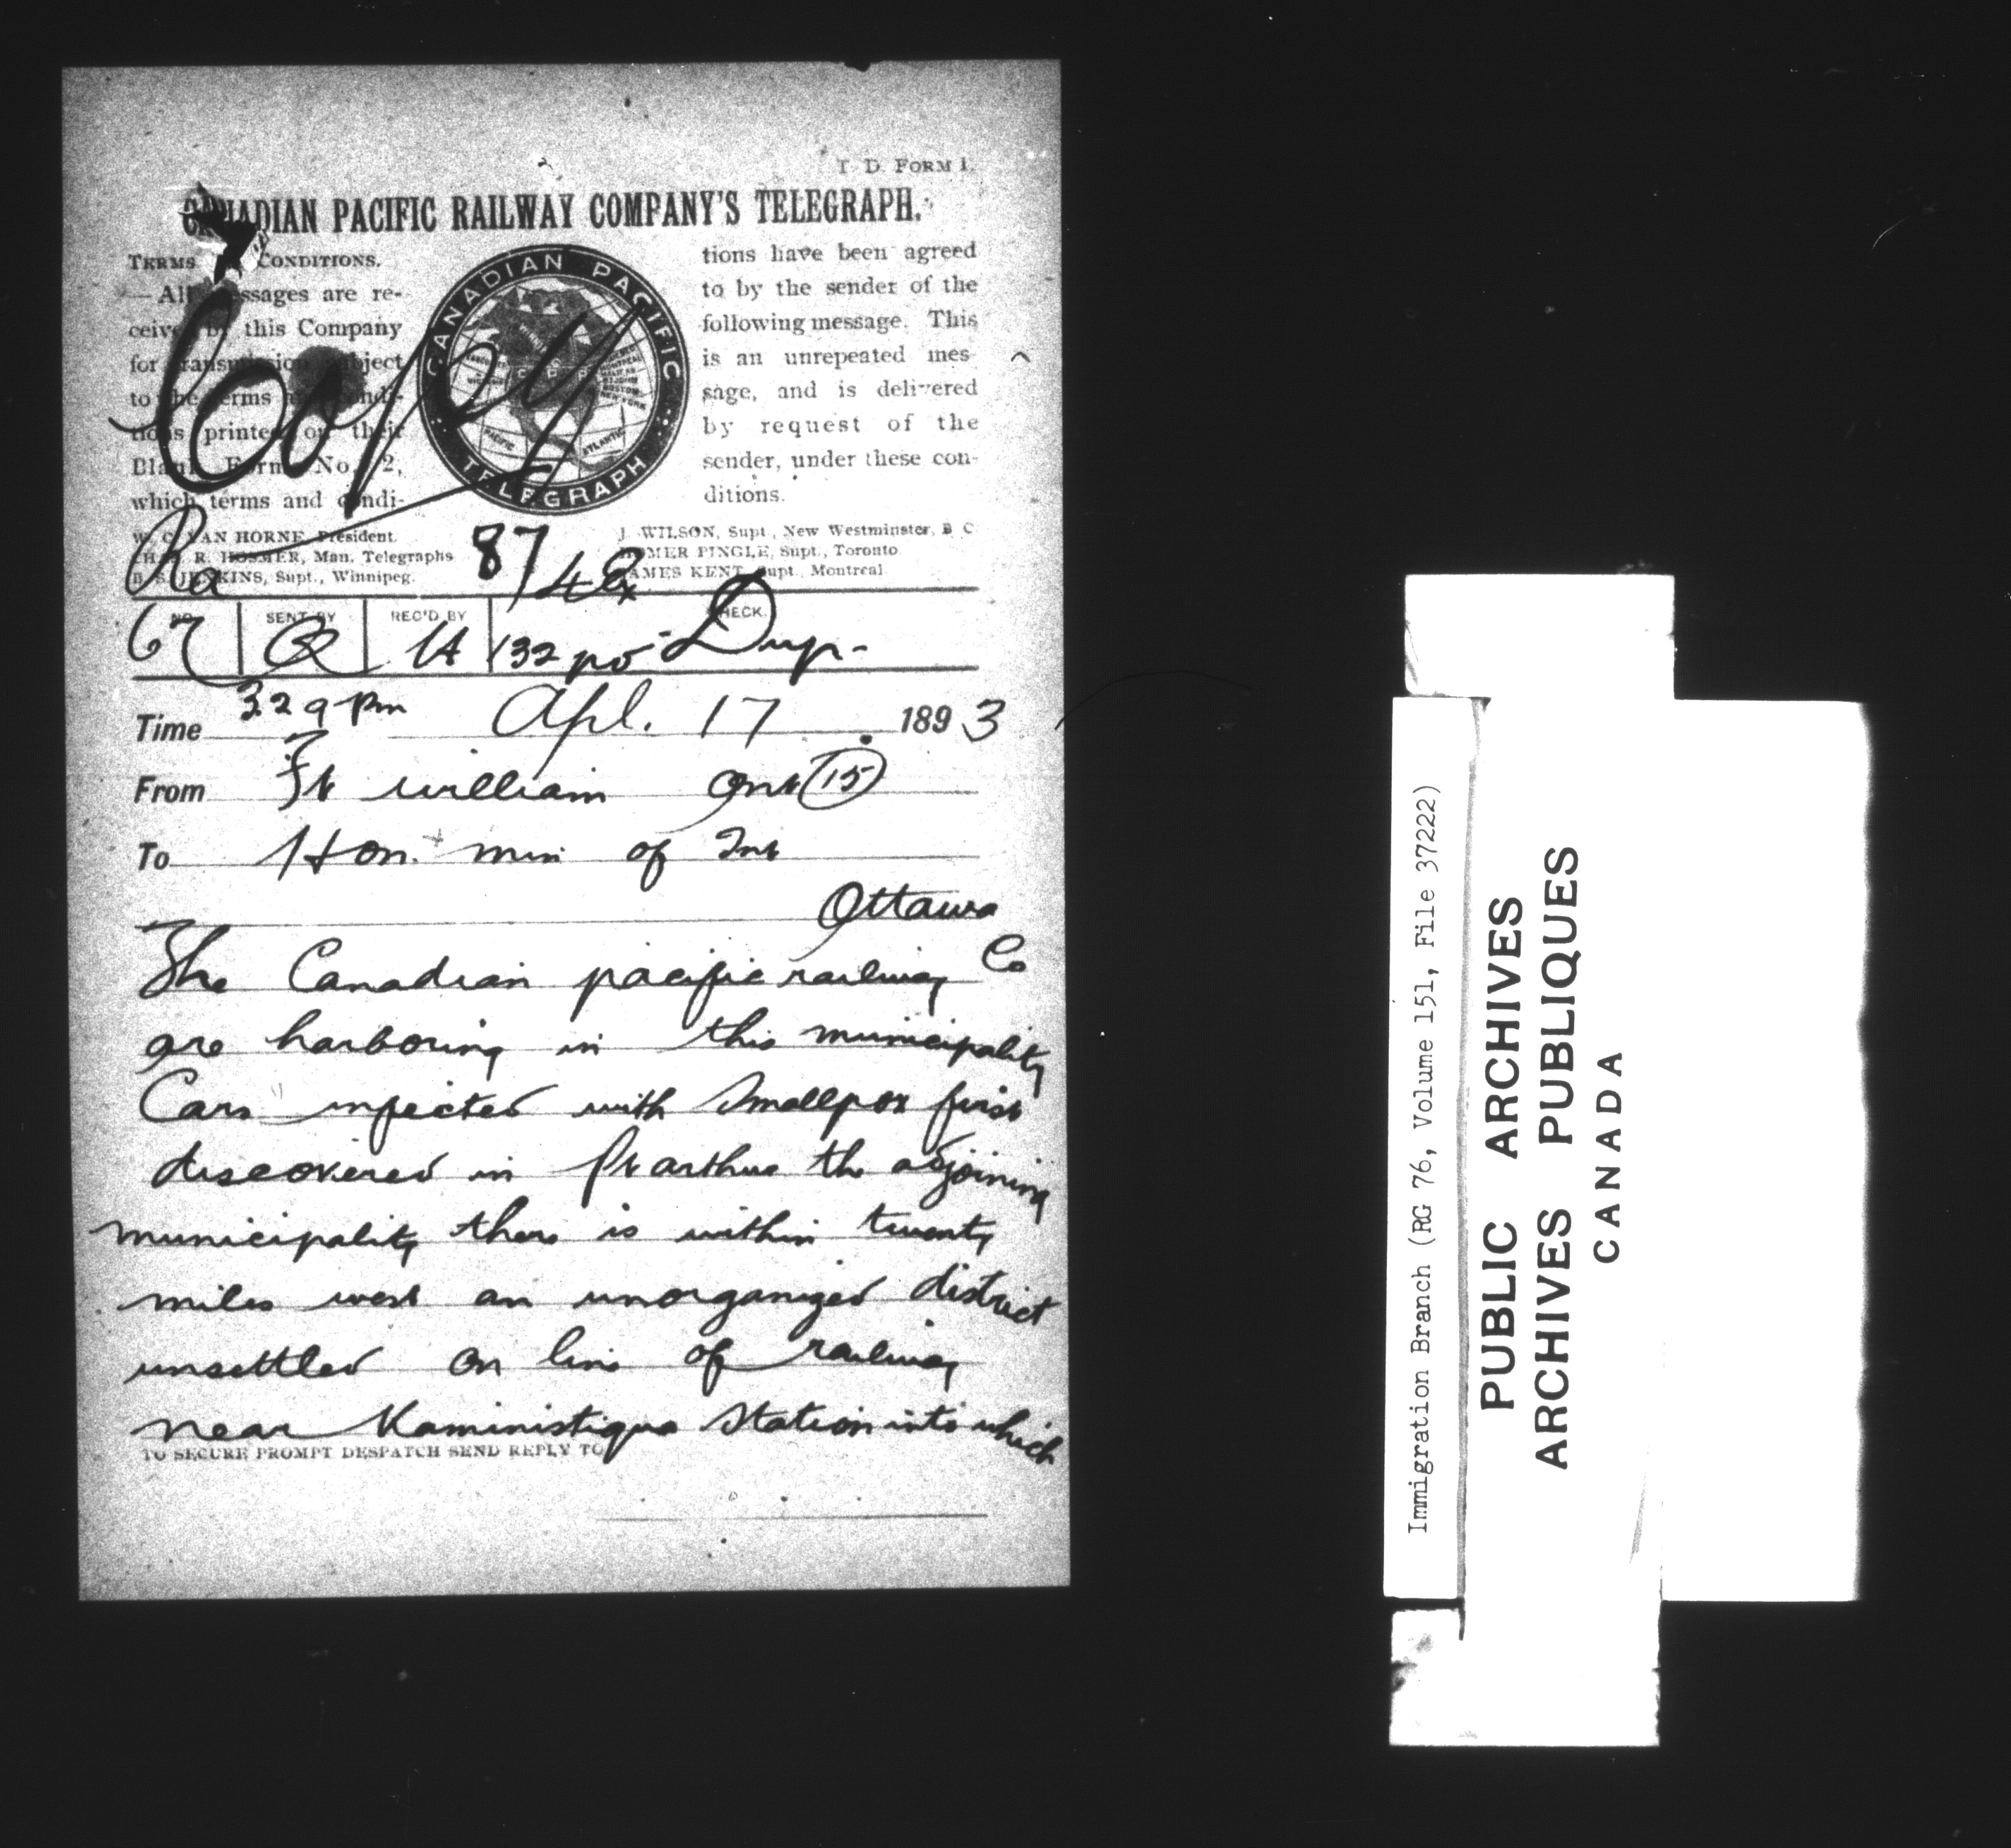 T. D. FORM 1.
CANADIAN PACIFIC RAILWAY COMPANY'S TELEGRAPH.
TERMS CONDITIONS.
—All messages are re-
ceived by this Company
for transmission subject
to the terms and condi-
tions printed on their
Blank Form No. 2,
which terms and condi-
tions have been agreed
to by the sender of the
following message. This
is an unrepeated mes-
sage, and is delivered
by request of the
sender, under these con-
ditions.
CANADIAN PACIFIC
TELEGRAPH
Copy
W. C. VAN HORNE, President.
CHAS. R. HOSMER, Man. Telegraphs
B. S. JENKINS, Supt., Winnipeg.
J. WILSON, Supt., New Westminster, B C
HOMER PINGLE, Supt., Toronto
JAMES KENT, Supt., Montreal
87
NO. SENT BY REC'D BY CHECK.
67 132 Dup-
Time 329 Pm Apl. 17 1893
From Ft william Ont (15)
To Hon. min of Int
Ottawa
The Canadian pacific railway Co
are harboring in this municipality
Cars infected with Smallpox first
discovered in Pt arthur the adjoining
municipality there is within twenty
miles west an unorganized district
unsettled on line of railway
near Kaministiqua Station into which
TO SECURE PROMPT DESPATCH SEND REPLY TO
Immigration Branch (RG 76, Volume 151, File 37222)
PUBLIC ARCHIVES
ARCHIVES PUBLIQUES
CANADA